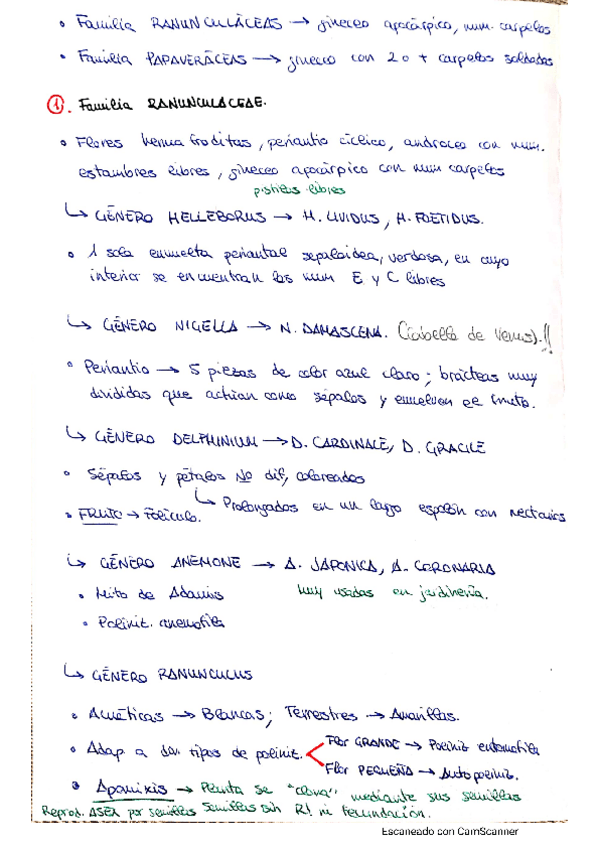 • Familia RANUNCULÁCEAS → gineceo apocárpico, num. carpelos
• Familia PAPAVERÁCEAS → gineceo con 2 o + carpelos soldados
①. Familia RANUNCULACEAE.
• Flores hermafroditas, periantio cíclico, androceo con num.
estambres libres, gineceo apocárpico con num carpelos
pistilos libres
↳ GÉNERO HELLEBORUS → H. LIVIDUS, H. FOETIDUS.
• 1 sola envuelta periantal sepaloidea, verdosa, en cuyo
interior se encuentran los num E y C libres
↳ GÉNERO NIGELLA → N. DAMASCENA. (Cabello de Venus).!!
• Periantio → 5 piezas de color azul claro; brácteas muy
divididas que actúan como sépalos y envuelven el fruto.
↳ GÉNERO DELPHINIUM → D. CARDINALE, D. GRACILE
• Sépalos y pétalos NO dif, coloreados
↳ Prolongados en un largo espolón con nectarios
• FRUTO → Folículo.
↳ GÉNERO ANEMONE → A. JAPONICA, A. CORONARIA
• Mito de Adonis muy usadas en jardinería.
• Polinit. anemofila
↳ GÉNERO RANUNCULUS
• Acuáticas → Blancas; Terrestres → Amarillas.
• Adap. a dos tipos de polinit. < Flor GRANDE → Polinit entomofila
Flor PEQUEÑA → Autopolinit.
• Apomixis → Planta se "clona" mediante sus semillas
Reprod. ASEX por semillas semillas sin R! ni fecundación.
Escaneado con CamScanner